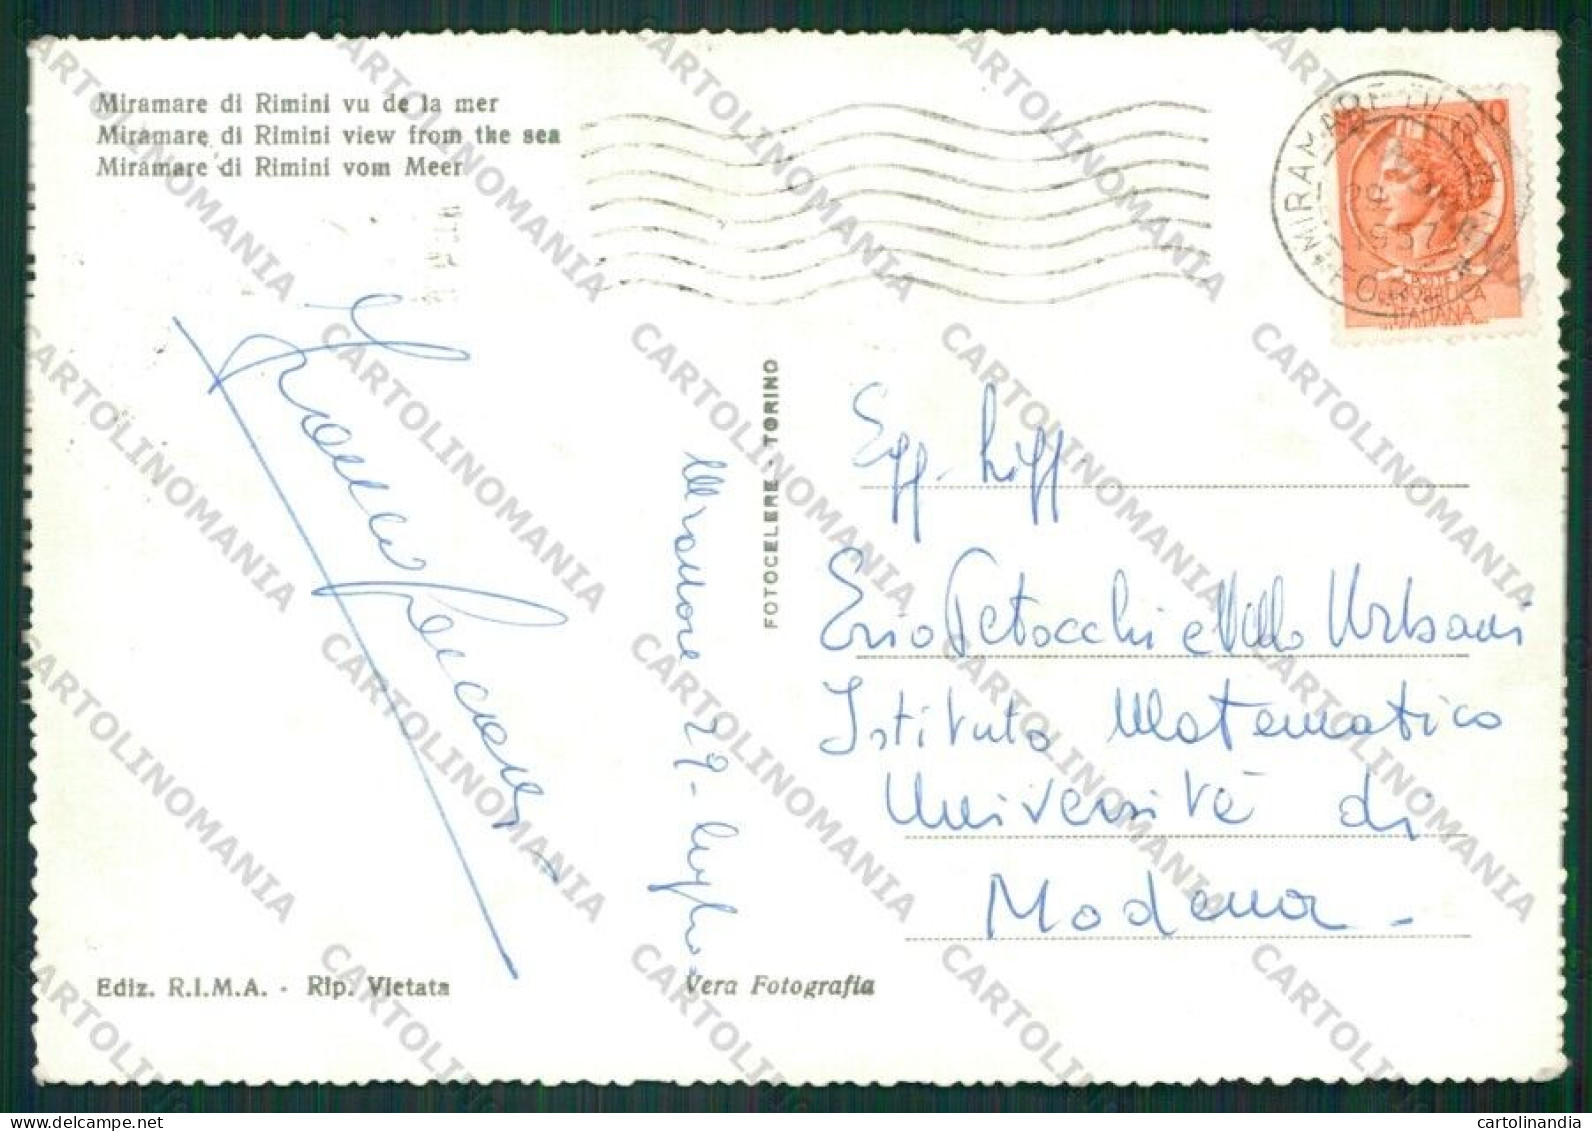 Miramare di Rimini vu de la mer
Miramare di Rimini view from the sea
Miramare di Rimini vom Meer
MIRAMARE DI
29
1957
REPUBBLICA
ITALIANA
FOTOCELERE - TORINO
Miramare 29 - luglio
Egg. Sigg.
Erio Petocchi e Aldo Urbani
Istituto Matematico
Università di
Modena -
Ediz. R.I.M.A. - Rip. Vietata
Vera Fotografia
CARTOLINOMANIA
cartolinandia